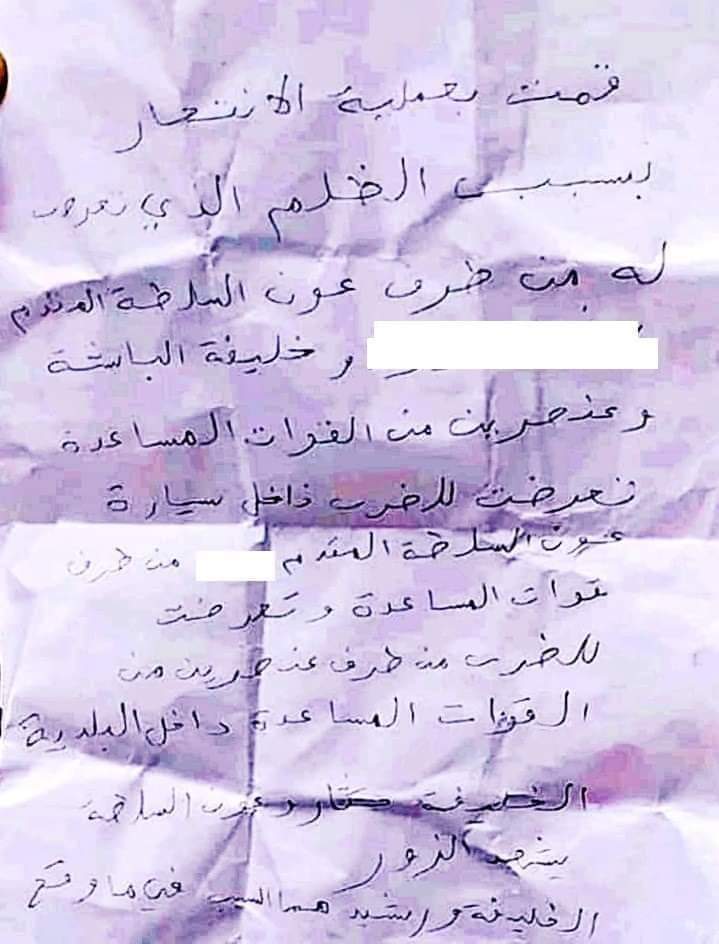 قمت بعملية الانتحار
بسبب الظلم الذي تعرضت
له من طرف عون السلطة المقدم
و خليفة الباشة
وعنصرين من القوات المساعدة
تعرضت للضرب داخل سيارة
عون السلطة المقدم من طرف
قوات المساعدة وتعرضت
للضرب من طرف عنصرين من
القوات المساعدة داخل البلدية
الخليفة وعون السلطة
يشهد الزور
الخليفة ورشيد هما السبب في ما وقع